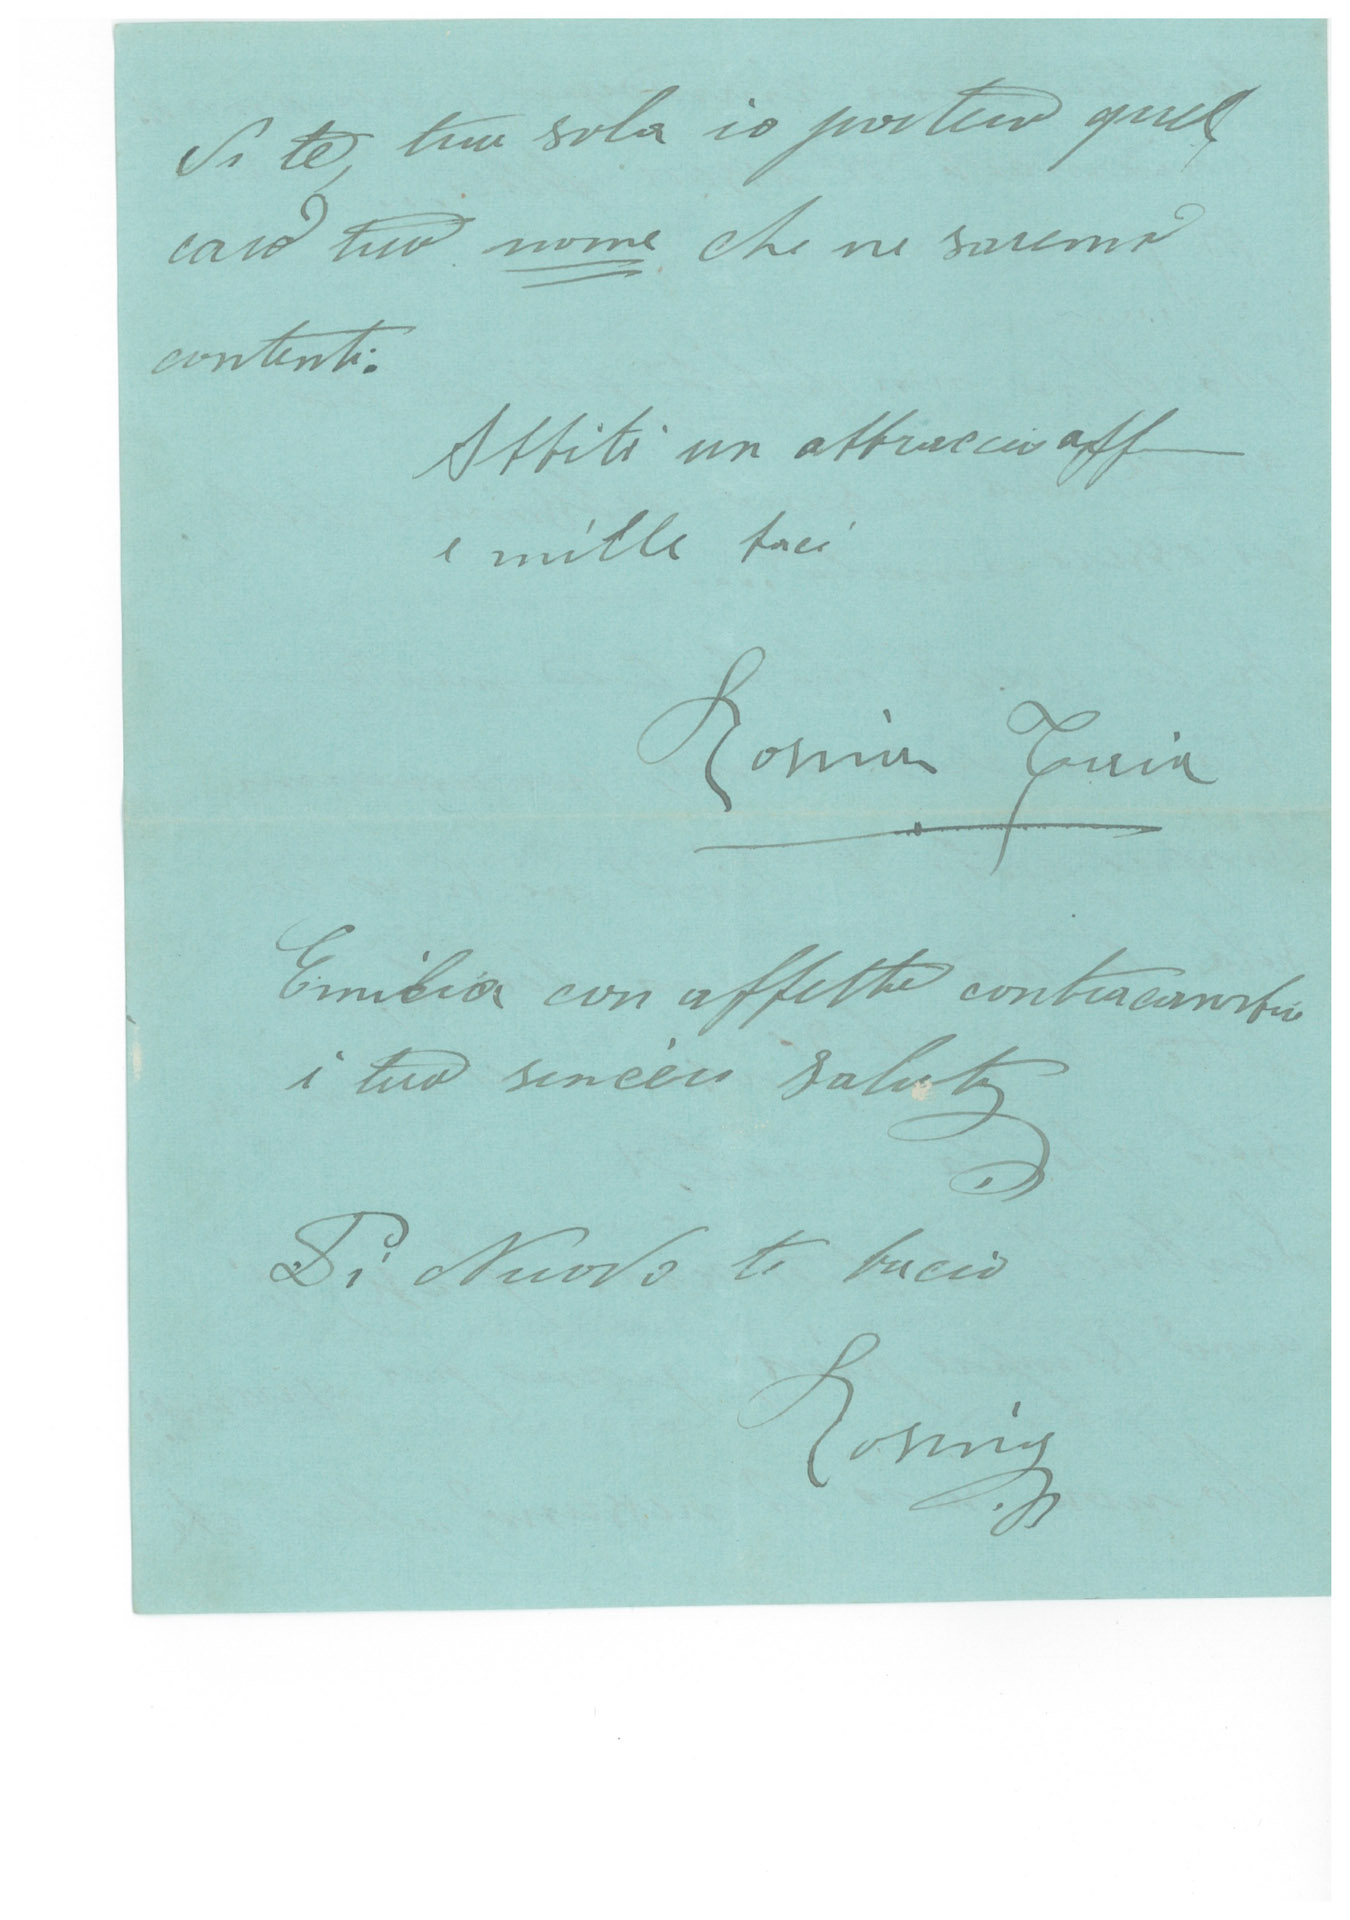 di te, tua sola io porterò quel
caro tuo nome che ne saremo
contenti.
Abbiti un abbraccio aff
e mille baci
Rosina Turia
Emilia con affetto contracambia
i tuo sinceri saluti
Di Nuovo te bacio
Rosina